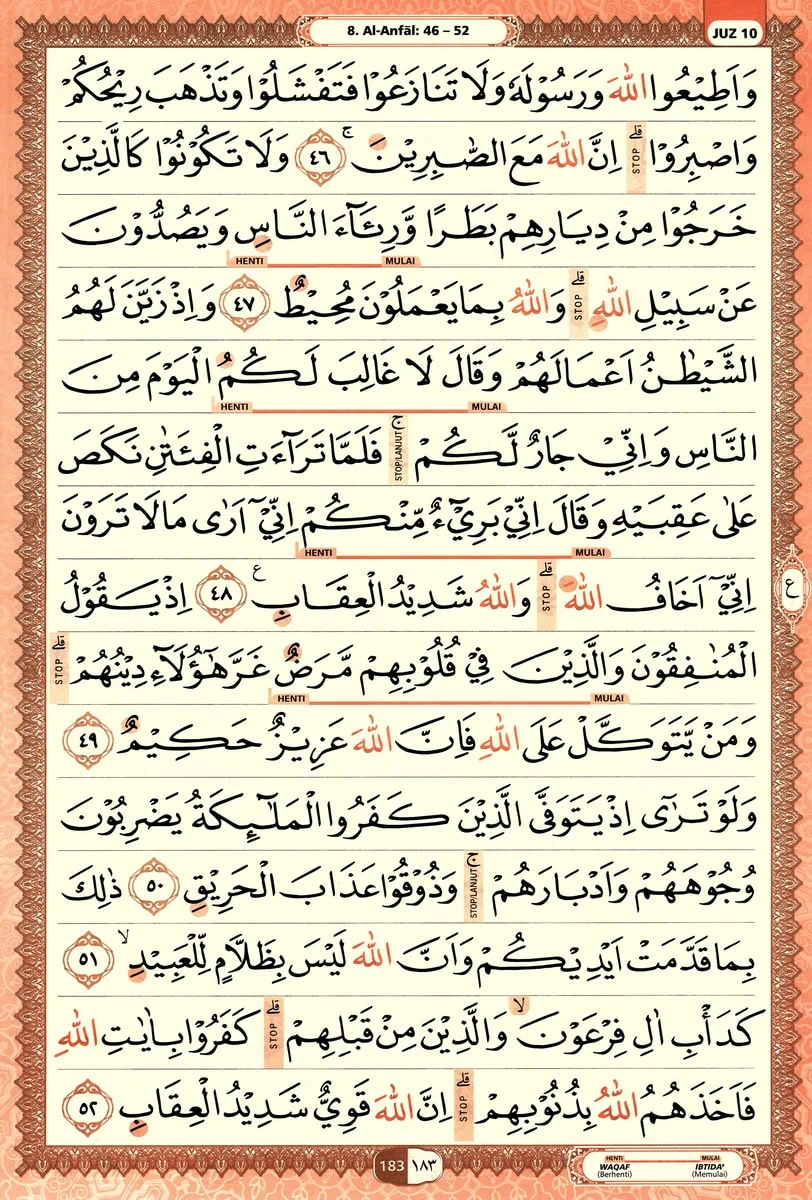 8. Al-Anfāl: 46 – 52
JUZ 10
وَاَطِيْعُوا اللّٰهَ وَرَسُوْلَهٗ وَلَا تَنَازَعُوْا فَتَفْشَلُوْا وَتَذْهَبَ رِيْحُكُمْ
وَاصْبِرُوْا ۗ STOP اِنَّ اللّٰهَ مَعَ الصّٰبِرِيْنَ ۚ ٤٦ وَلَا تَكُوْنُوْا كَالَّذِيْنَ
خَرَجُوْا مِنْ دِيَارِهِمْ بَطَرًا وَّرِئَاۤءَ النَّاسِ وَيَصُدُّوْنَ
HENTI MULAI
عَنْ سَبِيْلِ اللّٰهِ ۗ STOP وَاللّٰهُ بِمَا يَعْمَلُوْنَ مُحِيْطٌ ٤٧ وَاِذْ زَيَّنَ لَهُمُ
الشَّيْطٰنُ اَعْمَالَهُمْ وَقَالَ لَا غَالِبَ لَكُمُ الْيَوْمَ مِنَ
HENTI MULAI
النَّاسِ وَاِنِّيْ جَارٌ لَّكُمْ ۚ STOP/LANJUT فَلَمَّا تَرَاۤءَتِ الْفِئَتٰنِ نَكَصَ
عَلٰى عَقِبَيْهِ وَقَالَ اِنِّيْ بَرِيْۤءٌ مِّنْكُمْ اِنِّيْٓ اَرٰى مَا لَا تَرَوْنَ
HENTI MULAI
اِنِّيْٓ اَخَافُ اللّٰهَ ۗ STOP وَاللّٰهُ شَدِيْدُ الْعِقَابِ ࣖ ٤٨ اِذْ يَقُوْلُ
ع
الْمُنٰفِقُوْنَ وَالَّذِيْنَ فِيْ قُلُوْبِهِمْ مَّرَضٌ غَرَّ هٰٓؤُلَاۤءِ دِيْنُهُمْ ۗ STOP
HENTI MULAI
وَمَنْ يَّتَوَكَّلْ عَلَى اللّٰهِ فَاِنَّ اللّٰهَ عَزِيْزٌ حَكِيْمٌ ٤٩
وَلَوْ تَرٰٓى اِذْ يَتَوَفَّى الَّذِيْنَ كَفَرُوا الْمَلٰۤىِٕكَةُ يَضْرِبُوْنَ
وُجُوْهَهُمْ وَاَدْبَارَهُمْ ۚ STOP/LANJUT وَذُوْقُوْا عَذَابَ الْحَرِيْقِ ٥٠ ذٰلِكَ
بِمَا قَدَّمَتْ اَيْدِيْكُمْ وَاَنَّ اللّٰهَ لَيْسَ بِظَلَّامٍ لِّلْعَبِيْدِ ۙ ٥١
كَدَأْبِ اٰلِ فِرْعَوْنَ ۙ وَالَّذِيْنَ مِنْ قَبْلِهِمْ ۗ STOP كَفَرُوْا بِاٰيٰتِ اللّٰهِ
فَاَخَذَهُمُ اللّٰهُ بِذُنُوْبِهِمْ ۗ STOP اِنَّ اللّٰهَ قَوِيٌّ شَدِيْدُ الْعِقَابِ ٥٢
183 ١٨٣
HENTI MULAI
WAQAF IBTIDA'
(Berhenti) (Memulai)